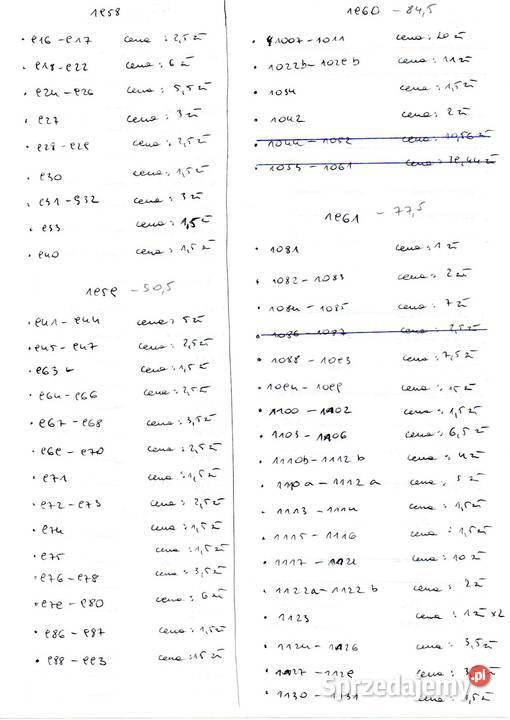 1958
• 916-917 cena: 2,5 zł
• 918-922 cena: 6 zł
• 924-926 cena: 5,5 zł
• 927 cena: 3 zł
• 928-929 cena: 2,5 zł
• 930 cena: 1,5 zł
• 931-932 cena: 3 zł
• 933 cena: 1,5 zł
• 940 cena: 1,5 zł
1959 - 50,5
• 941-944 cena: 5 zł
• 945-947 cena: 2,5 zł
• 963 cena: 1,5 zł
• 964-966 cena: 2,5 zł
• 967-968 cena: 3,5 zł
• 969-970 cena: 2,5 zł
• 971 cena: 1,5 zł
• 972-973 cena: 2,5 zł
• 974 cena: 1,5 zł
• 975 cena: 1,5 zł
• 976-978 cena: 3,5 zł
• 979-980 cena: 6 zł
• 986-987 cena: 1,5 zł
• 988-993 cena: 15 zł
1960 - 84,5
• 1007-1011 cena: 20 zł
• 1022b-1029b cena: 11 zł
• 1034 cena: 1,5 zł
• 1042 cena: 2 zł
• 1044-1052 cena: 10,56 zł
• 1053-1061 cena: 29,44 zł
1961 - 77,5
• 1081 cena: 1 zł
• 1082-1083 cena: 2 zł
• 1084-1085 cena: 7 zł
• 1086-1087 cena: 2,5 zł
• 1088-1093 cena: 7,5 zł
• 1094-1099 cena: 15 zł
• 1100-1102 cena: 1,5 zł
• 1103-1106 cena: 6,5 zł
• 1110b-1112b cena: 4 zł
• 1110a-1112a cena: 5 zł
• 1113-1114 cena: 1,5 zł
• 1115-1116 cena: 1,5 zł
• 1117-1121 cena: 10 zł
• 1122a-1122b cena: 2 zł
• 1123 cena: 1 zł x2
• 1124-1126 cena: 3,5 zł
• 1127-1129 cena:
• 1130-1131 cena: 1,5 zł
Sprzedajemy.pl